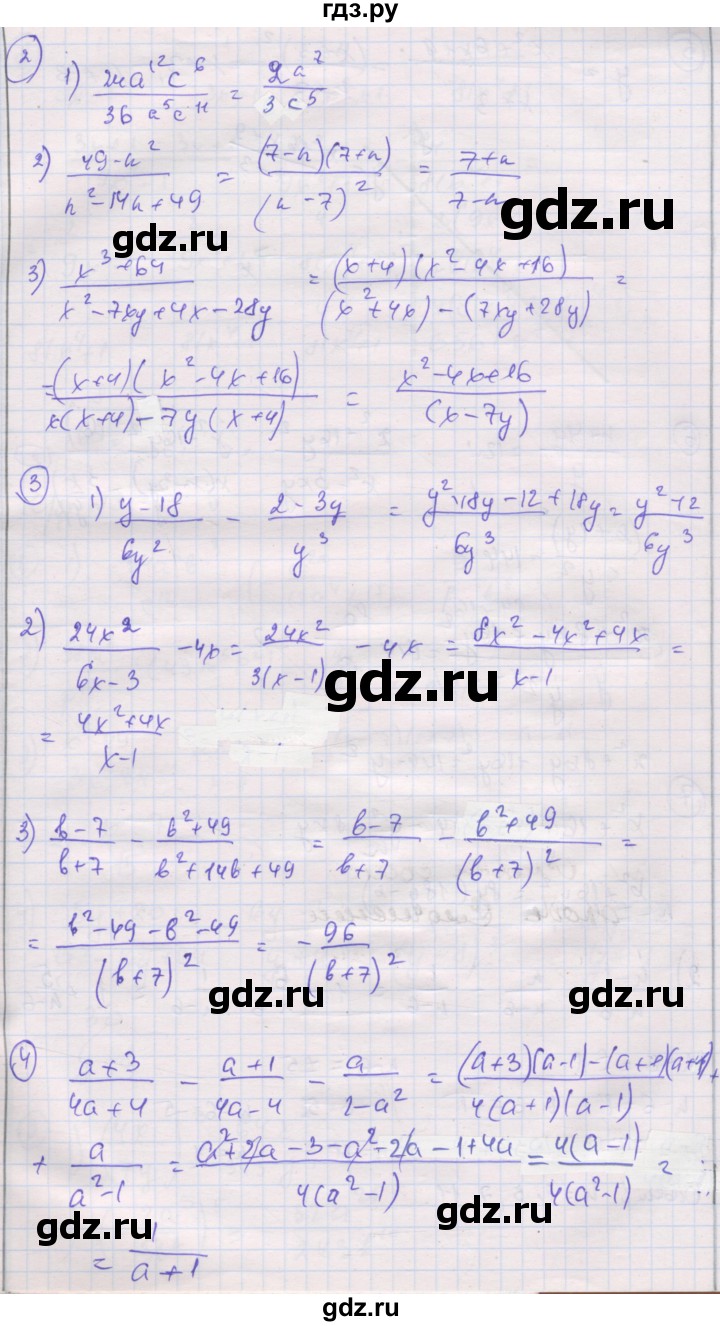 гдз.ру
2
1) 24a^12 c^6 / 36 a^5 c^11 = 2a^7 / 3c^5
2) 49-n^2 / n^2-14n+49 = (7-n)(7+n) / (n-7)^2 = 7+n / 7-n
gdz.ru gdz.ru
3) x^3+64 / x^2-7xy+4x-28y = (x+4)(x^2-4x+16) / (x^2+4x)-(7xy+28y) =
(x+4)(x^2-4x+16) / x(x+4)-7y(x+4) = x^2-4x+16 / (x-7y)
gdz.ru gdz.ru
3
1) y-18 / 6y^2 - 2-3y / y^3 = y^2-18y-12+18y / 6y^3 = y^2-12 / 6y^3
2) 24x^2 / 6x-3 -4x = 24x^2 / 3(x-1) - 4x = 8x^2-4x^2+4x / x-1 =
gdz.ru
= 4x^2+4x / x-1
3) b-7 / b+7 - b^2+49 / b^2+14b+49 = b-7 / b+7 - b^2+49 / (b+7)^2 =
gdz.ru gdz.ru
= b^2-49-b^2-49 / (b+7)^2 = - 96 / (b+7)^2
gdz.ru gdz.ru
4
a+3 / 4a+4 - a+1 / 4a-4 - a / 1-a^2 = (a+3)(a-1)-(a+1)(a+1) / 4(a+1)(a-1) +
+ a / a^2-1 = a^2+2a-3-a^2-2a-1+4a / 4(a^2-1) = 4(a-1) / 4(a^2-1) =
gdz.ru gdz.ru
= 1 / a+1
gdz.ru